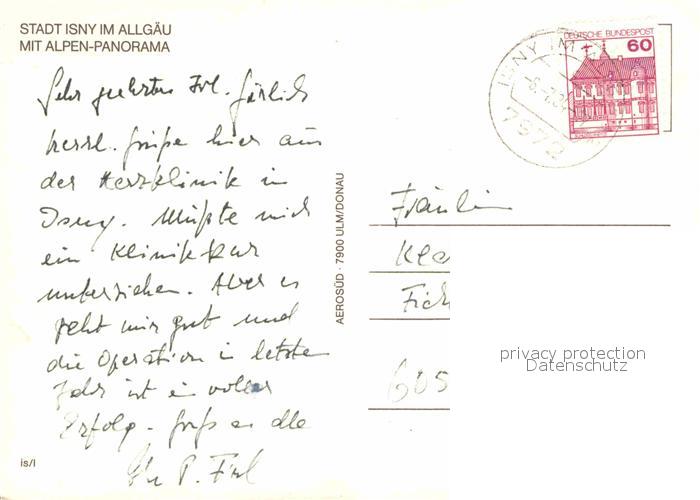 STADT ISNY IM ALLGÄU
MIT ALPEN-PANORAMA
Sehr geehrtes Frl.
herzl. Grüße hier aus
der Herzklinik in
Isny. Mußte mich
ein Klinikkur
unterziehen. Aber es
geht mir gut und
die Operation in letzten
Jahr ist ein voller
Erfolg. Gruß an alle
Ihr P.
is/l
AEROSÜD · 7900 ULM/DONAU
DEUTSCHE BUNDESPOST
60
ISNY IM
7972
Fräulein
605
privacy protection
Datenschutz